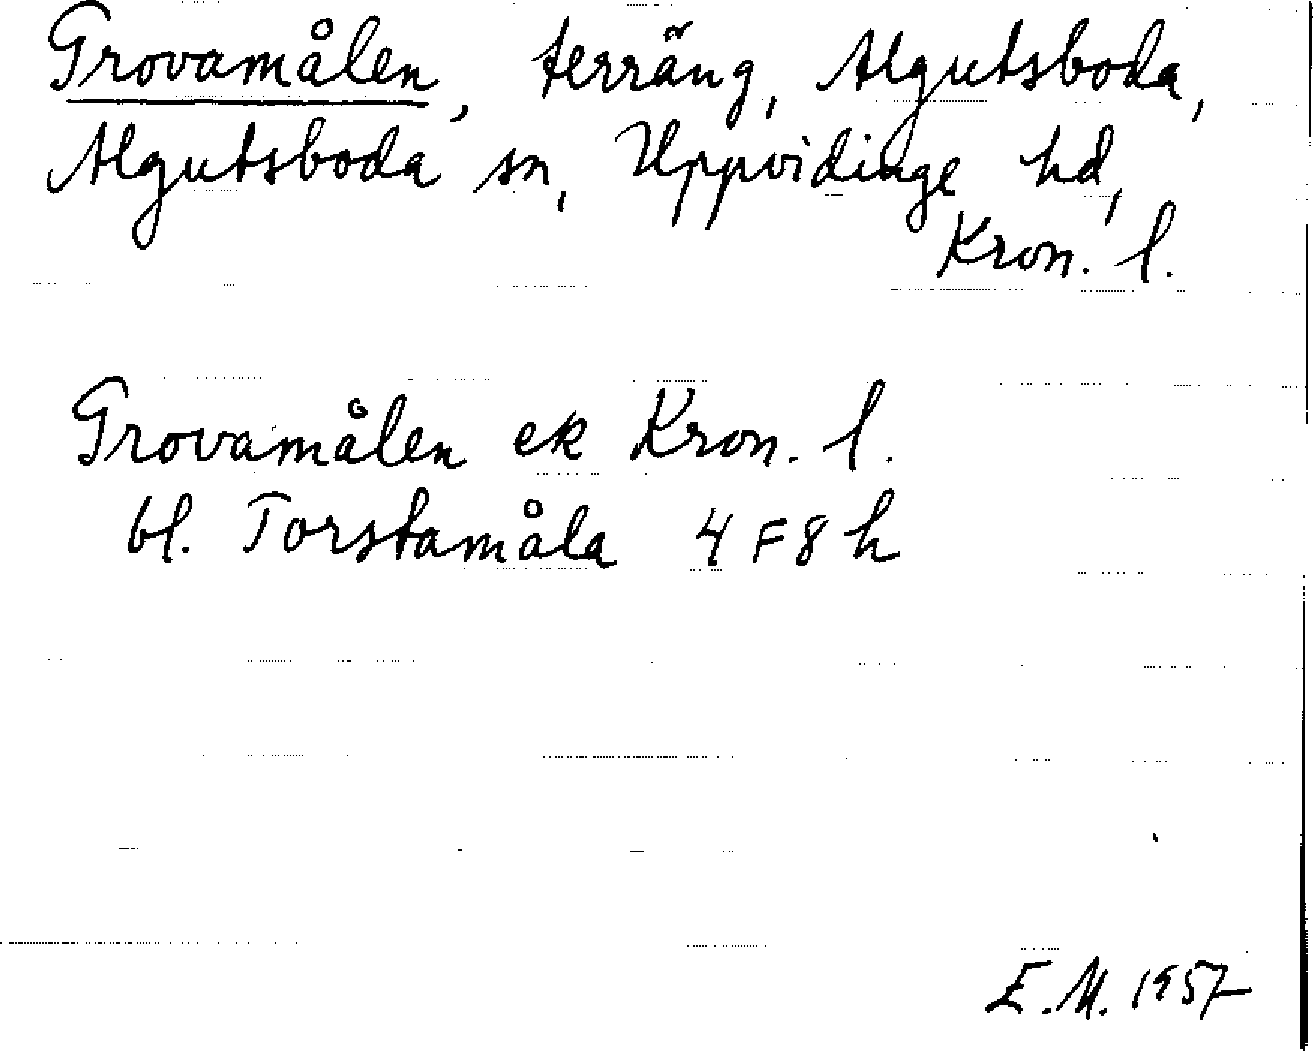 Grovamålen, terräng, Algutsboda,
Algutsboda sn, Uppvidinge hd,
Kron. l.
Grovamålen ek Kron. l.
bl. Torstamåla 4F8h
E.M. 1957